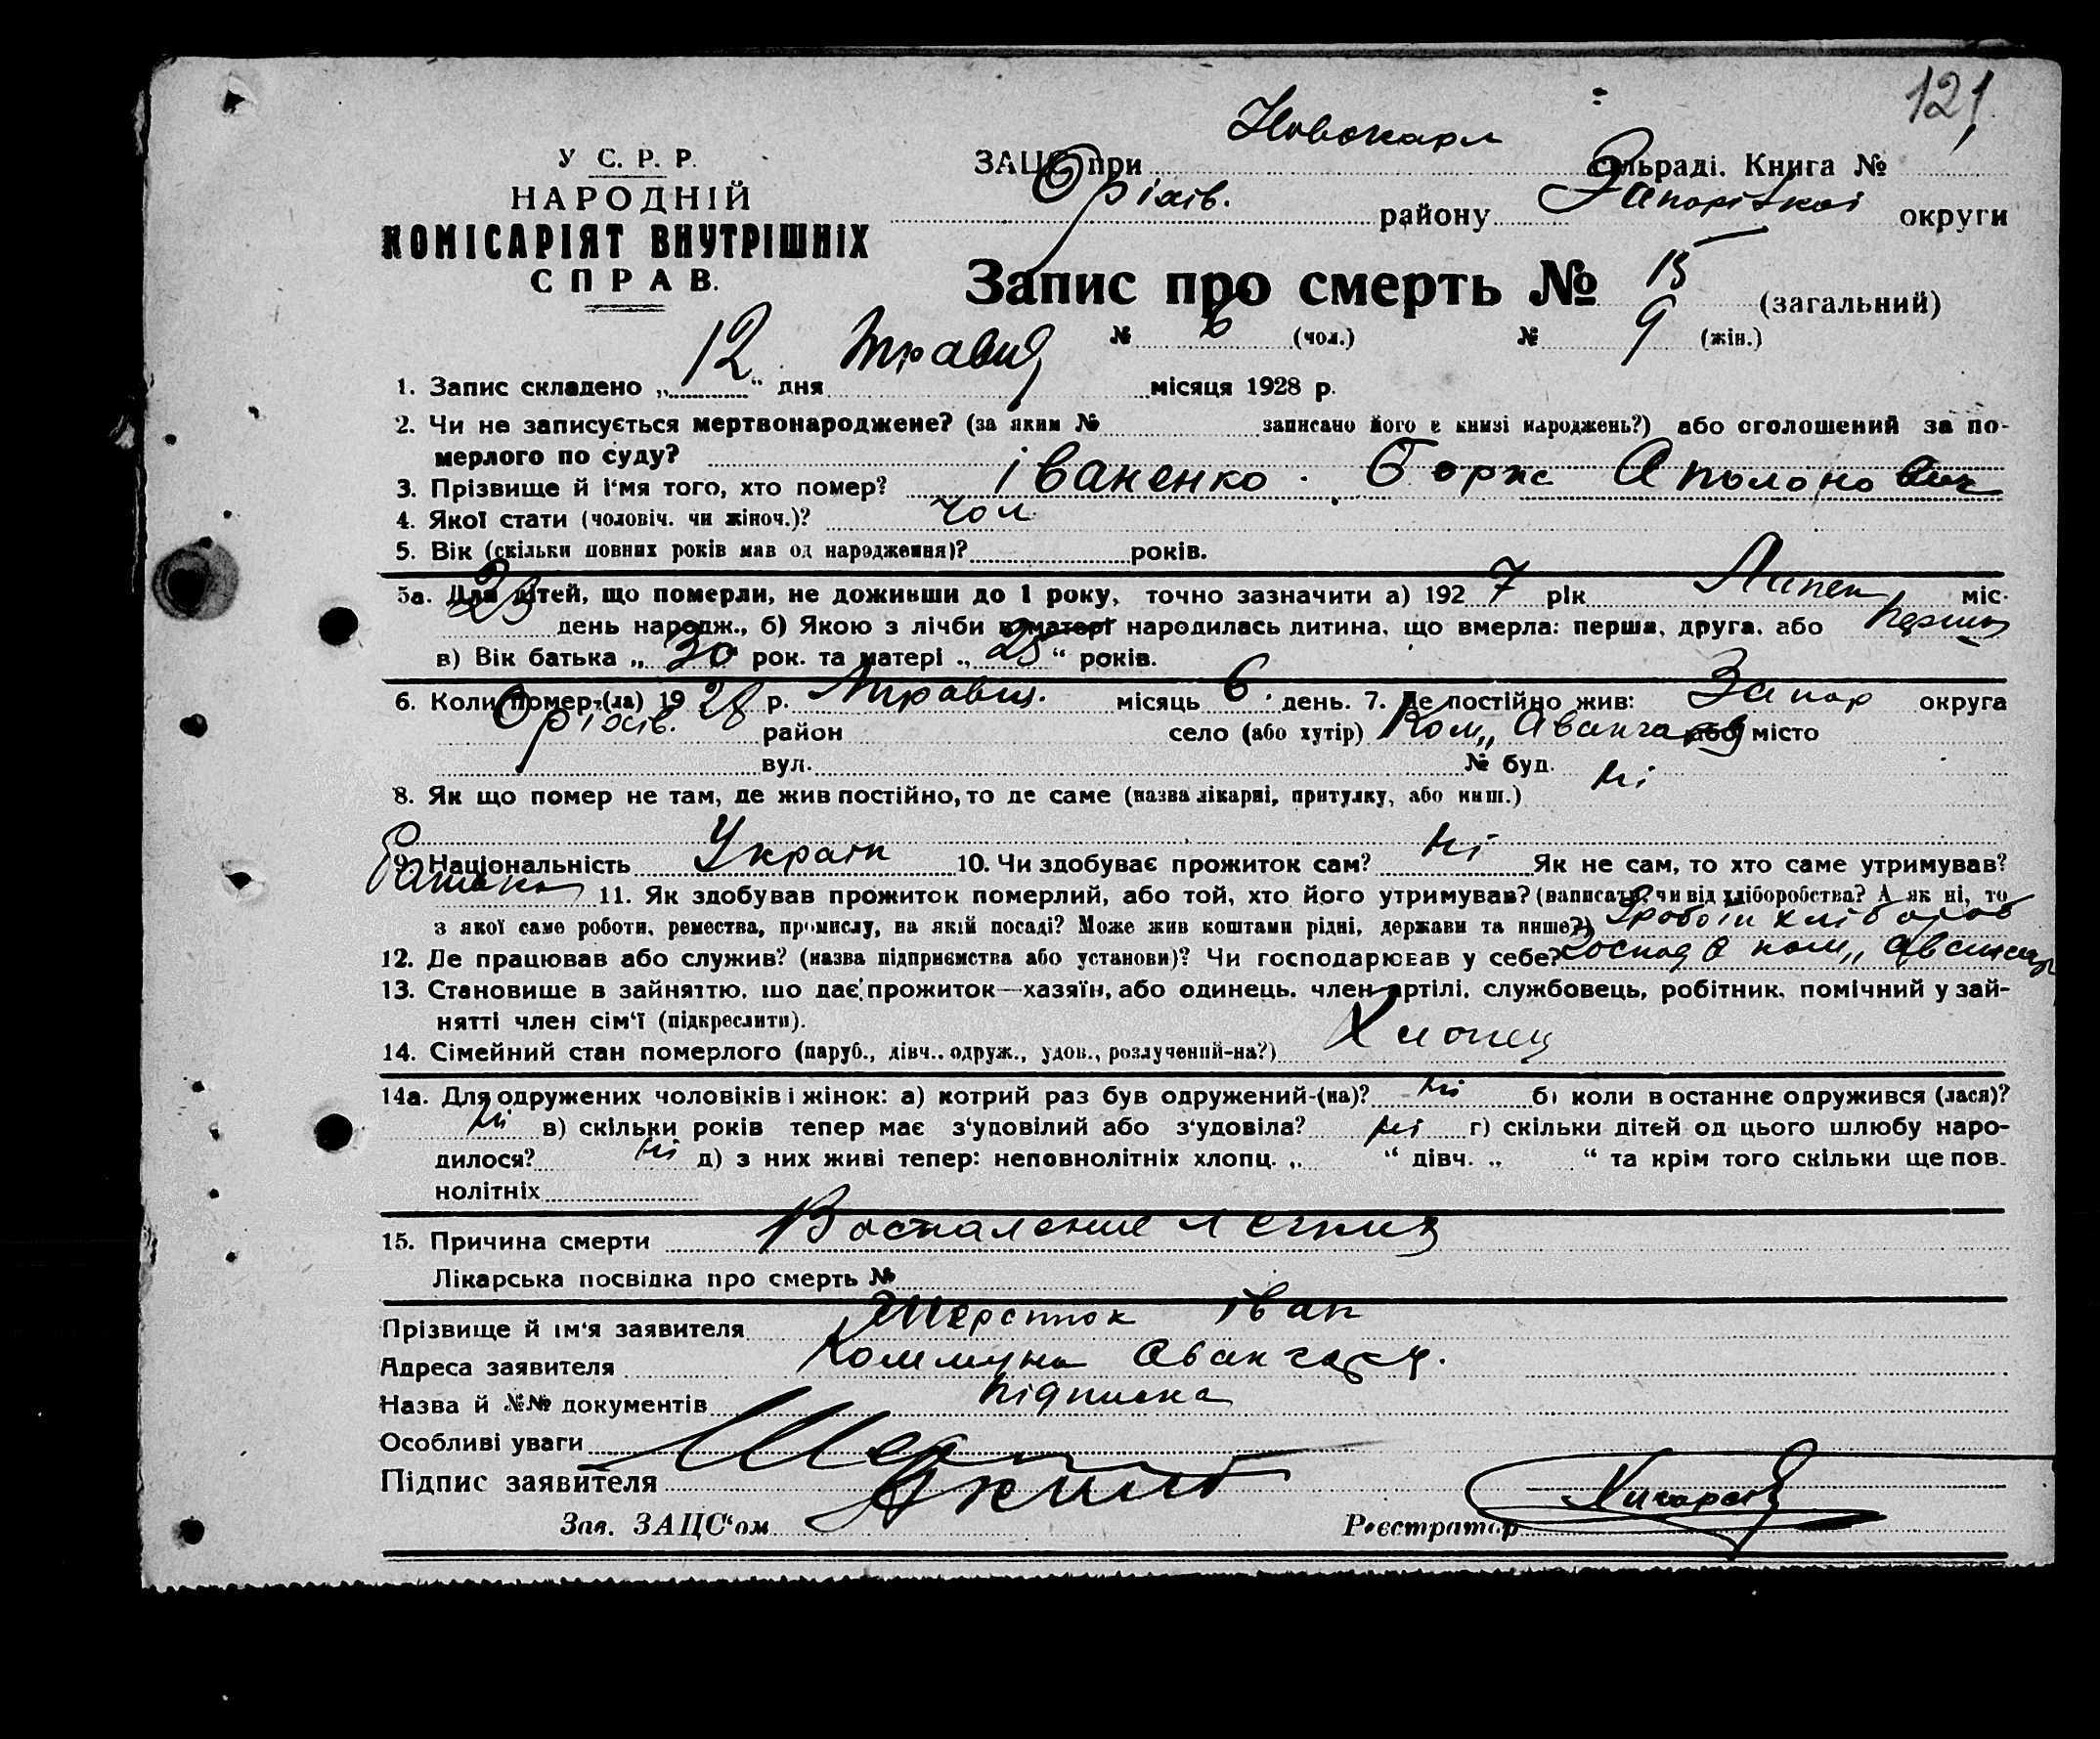 121
У С. Р. Р.
НАРОДНІЙ
КОМІСАРІЯТ ВНУТРІШНІХ
СПРАВ.
ЗАЦС при Новокарл сільраді. Книга №
Оріхів. району Запорізької округи
Запис про смерть № 15 (загальний)
№ 6 (чол.) № 9 (жін.)
1. Запис складено „ 12 “ дня травня місяця 1928 р.
2. Чи не записується мертвонароджене? (за яким № записано його в книзі народжень?) або оголошений за по-
мерлого по суду?
3. Прізвище й і'мя того, хто помер? Іваненко . Борис Аполонович
4. Якої стати (чоловіч. чи жіноч.)? Чол.
5. Вік (скільки повних років мав од народження)? років.
5а. Для дітей, що померли, не доживши до 1 року, точно зазначити а) 192 7 рік Липен міс.
25 день народж., б) Якою з лічби в матері народилась дитина, що вмерла: перша, друга, або перша
в) Вік батька „ 30 рок. та матері „ 25 “ років.
6. Коли помер-(ла) 19 28 р. травня. місяць 6. день. 7. Де постійно жив: Запор округа
Оріхів. район село (або хутір) Ком„ Авангард або місто
вул. № буд.
8. Як що помер не там, де жив постійно, то де саме (назва лікарні, притулку, або инш.) ні
9. Національність Україн 10. Чи здобуває прожиток сам? ні Як не сам, то хто саме утримував?
11. Як здобував прожиток померлий, або той, хто його утримував? (написати, чи від хліборобства? А як ні, то
з якої саме роботи, ремества, промислу, на якій посаді? Може жив коштами рідні, держави та инше?)
12. Де працював або служив? (назва підприємства або установи)? Чи господарював у себе? господ в ком„ Авангард
13. Становище в зайняттю, що дає прожиток—хазяїн, або одинець, член артілі, службовець, робітник, помічний у зай-
нятті член сім'ї (підкреслити).
14. Сімейний стан померлого (паруб., дівч., одруж., удов., розлучений-на?) Хлопец
14а. Для одружених чоловіків і жінок: а) котрий раз був одружений-(на)? ні б) коли в останнє одружився (лася)?
ні в) скільки років тепер має з'удовілий або з'удовіла? ні г) скільки дітей од цього шлюбу наро-
дилося? ні д) з них живі тепер: неповнолітніх хлопц. „ “ дівч. „ “ та крім того скільки ще пов-
нолітніх
15. Причина смерти Воспаление легких
Лікарська посвідка про смерть №
Прізвище й ім'я заявителя Шерстюк Іван
Адреса заявителя Коммуна Авангард.
Назва й №№ документів підписка
Особливі уваги
Підпис заявителя
Зав. ЗАЦС'ом Реєстратор